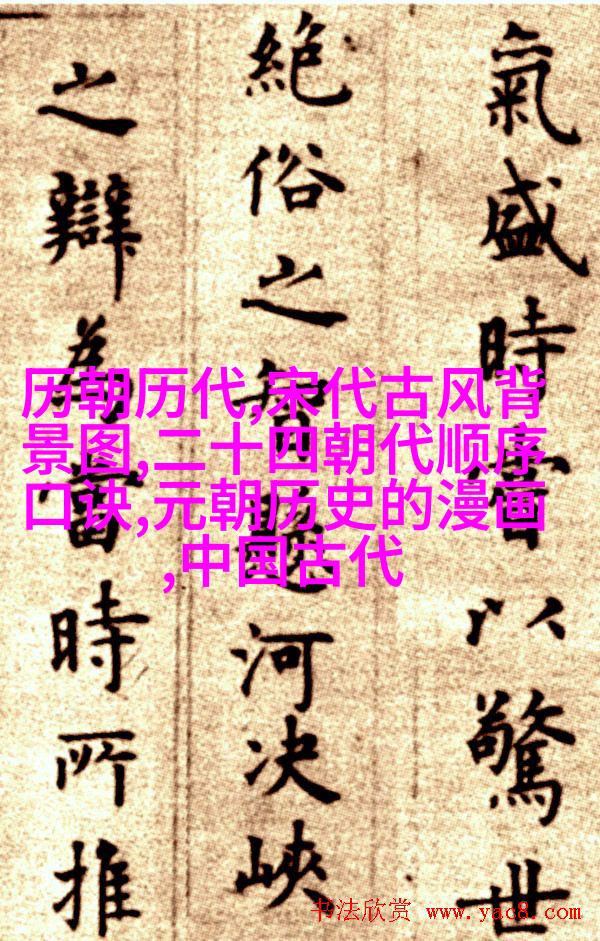 氣盛時以驚世
絕俗之智河決峽
之辯為當時所推
历朝历代,宋代古风背
景图,二十四朝代顺序
口诀,元朝历史的漫画
,中国古代
书法欣赏 www.yac8.com